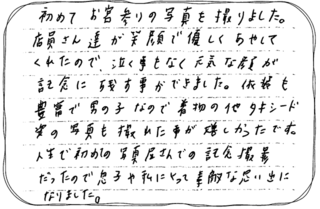 初めてお宮参りの写真を撮りました。
店員さん達が笑顔で優しくあやして
くれたので、泣く事もなく元気な顔が
記念に残す事ができました。衣装も
豊富で男の子なので着物の他タキシード
姿の写真も撮れた事が嬉しかったです。
人生で初めての写真屋さんでの記念撮影
だったので息子や私にとって素敵な思い出に
なりました。